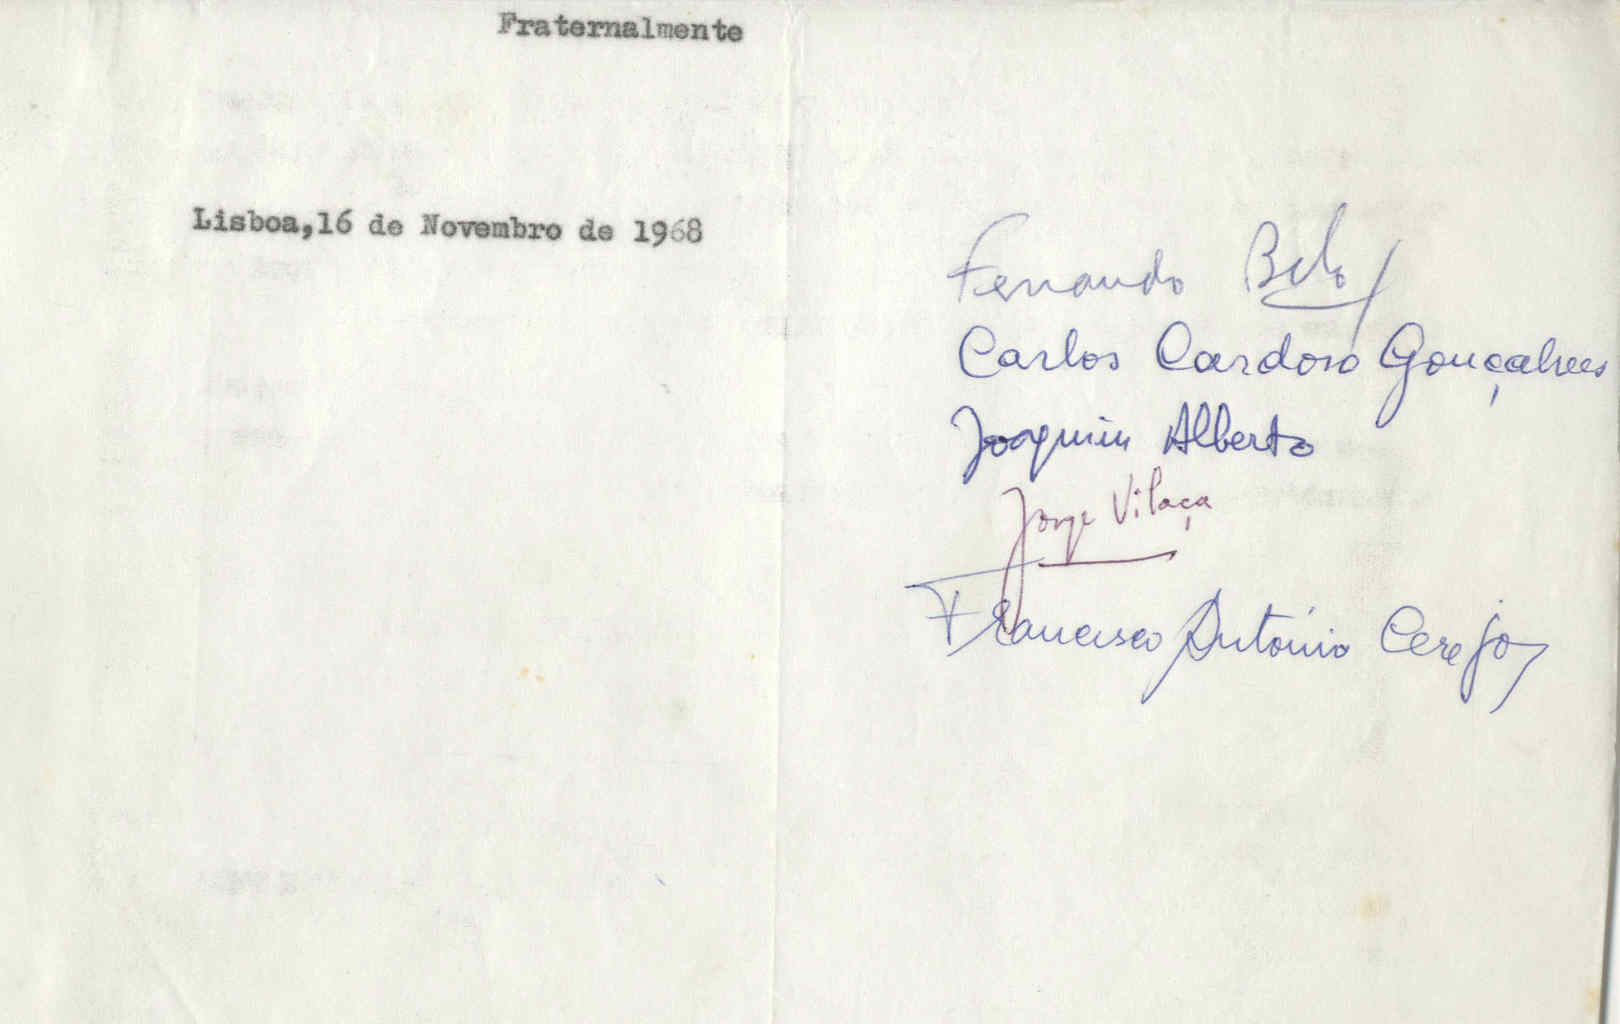 Fraternalmente
Lisboa,16 de Novembro de 1968
Fernando Belo
Carlos Cardoso Gonçalves
Joaquim Alberto
Jorge Vilaça
Francisco António Cerejo